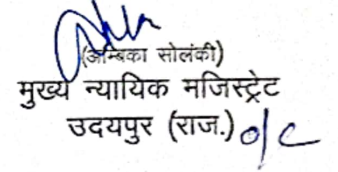 (अम्बिका सोलंकी)
मुख्य न्यायिक मजिस्ट्रेट
उदयपुर (राज.) o/c